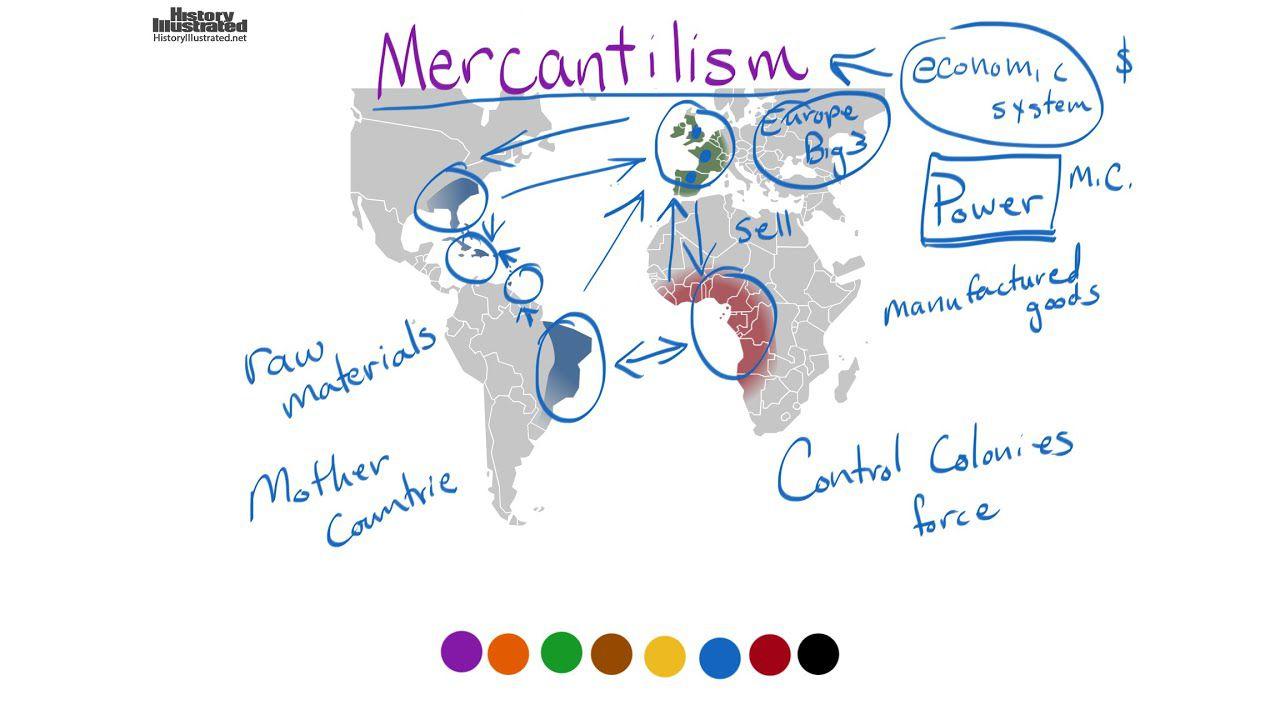 History
Illustrated
HistoryIllustrated.net
Mercantilism
economic
system
$
Europe
Big 3
Power
M.C.
sell
manufactured
goods
raw
materials
Mother
Countrie
Control Colonies
force